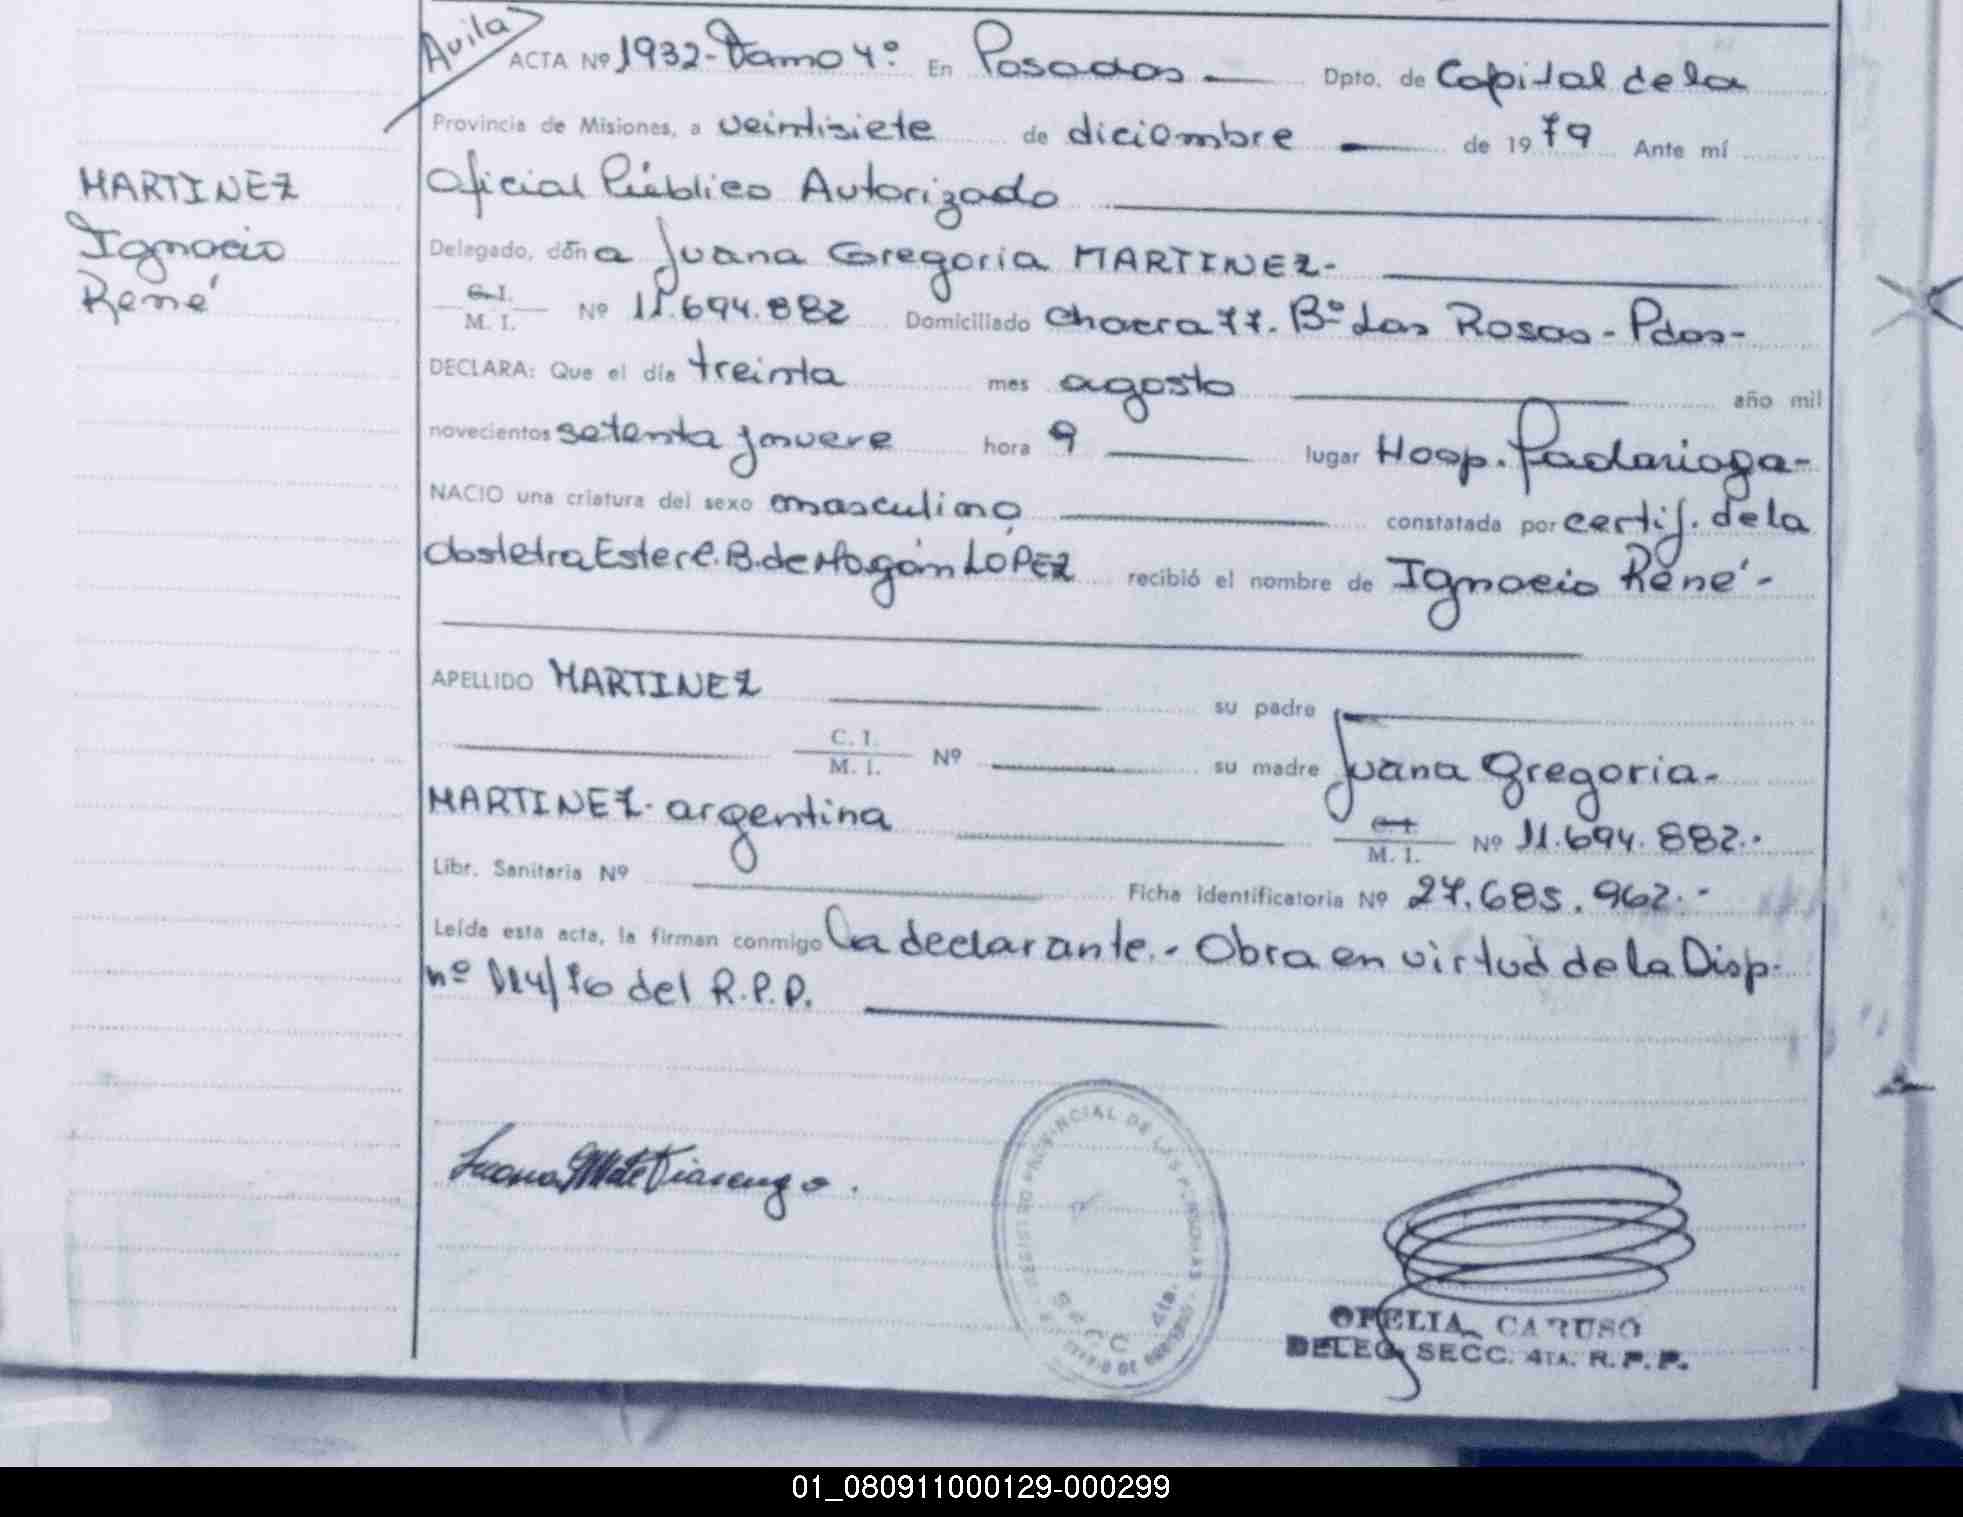 Avila
ACTA Nº 1932- Tomo 4º En Posadas Dpto. de Capital de la
Provincia de Misiones, a veintisiete de diciembre de 1979 Ante mí
Oficial Público Autorizado
MARTINEZ
Ignacio
René
Delegado, doña Juana Gregoria MARTINEZ-
C. I.
M. I. Nº 11.694.882 Domiciliado Chacra 77. Bº Las Rosas - Pdas-
DECLARA: Que el día treinta mes agosto año mil
novecientos setenta y nueve hora 9 lugar Hosp. Madariaga-
NACIO una criatura del sexo masculino constatada por certif. de la
Obstetra Ester C. B. de LÓPEZ recibió el nombre de Ignacio René-
APELLIDO MARTINEZ su padre
C. I.
M. I. Nº su madre Juana Gregoria-
MARTINEZ- argentina C. I.
M. I. Nº 11.694.882.-
Libr. Sanitaria Nº Ficha identificatoria Nº 27.685.962.-
Leída esta acta, la firman conmigo la declarante.- Obra en virtud de la Disp.
nº 114/76 del R.P.P.
REGISTRO PROVINCIAL DE LAS PERSONAS
SECC. 4ta.
OFELIA CARUSO
DELEG. SECC. 4TA. R. P. P.
01_080911000129-000299